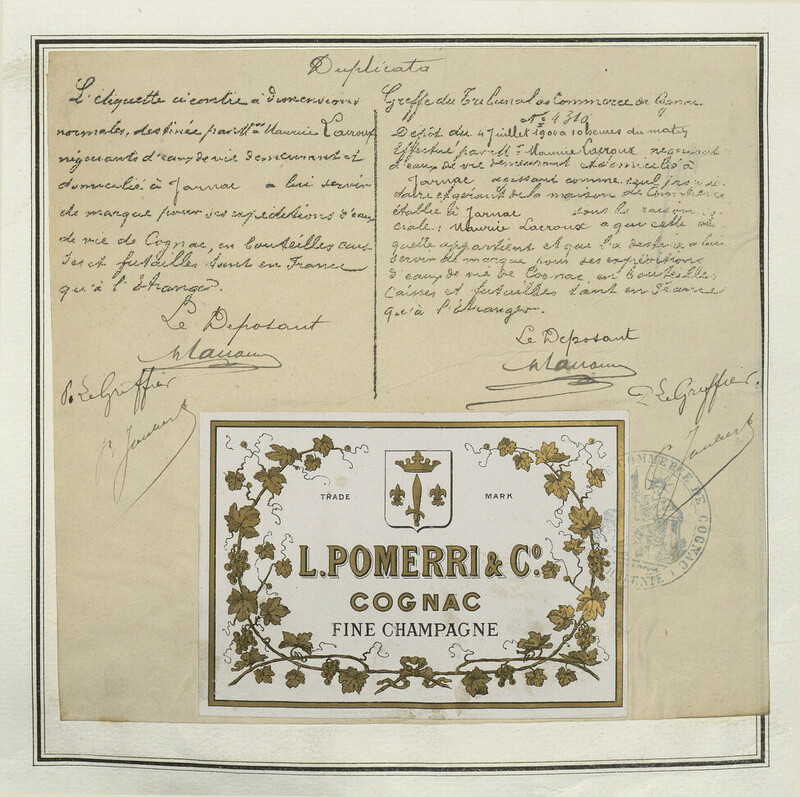 Duplicata
L'étiquette ci contre à dimensions
normales, destinée par Mr Maurice Lacroux
négociants d'eaux de vie demeurant et
domicilié à Jarnac a lui servir
de marque pour ses expéditions d'eau
de vie de Cognac, en bouteilles caisses
et futailles, tant en France
qu'à l'Étranger.
Le Deposant
P. Le Greffier
Greffe du Tribunal de Commerce de Cognac
No 4310
Depôt du 4 Juillet 1904 a 10 heures du matin
Effectué par Mr Maurice Lacroux negociant
d'eaux de vie demeurant et domicilié à
Jarnac agissant comme seul proprié
taire et gérant de la maison de Commerce
établie à Jarnac sous la raison so
ciale: Maurice Lacroux a que cette éti
quette appartient et que la destine a lui
servir de marque pour ses expéditions
d'eaux de vie de Cognac, en bouteilles
Caisses et futailles tant en France
qu'à l'Étranger.
Le Deposant
P. Le Greffier
TRADE MARK
L. POMERRI & Co.
COGNAC
FINE CHAMPAGNE
COMMERCE DE COGNAC